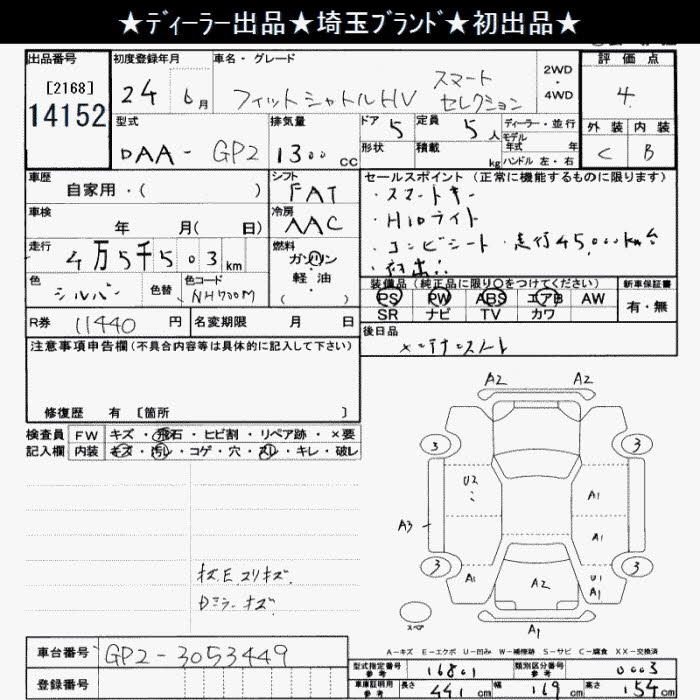 ★ディーラー出品★埼玉ブランド★初出品★
出品番号 初度登録年月 車名・グレード 2WD・4WD 評価点
[2168] 24年6月 フィットシャトルHV スマートセレクション 4
14152
型式 排気量 ドア 5 定員 5人 ディーラー・並行 外装 内装
DAA-GP2 1300cc 形状 積載 kg モデル年式 年 C B
ハンドル 左・右
車歴 自家用・( ) シフト FAT セールスポイント (正常に機能するものに限ります)
車検 年 月( 日) 冷房 AAC ・スマートキー
・HIDライト
走行 4万5千503km 燃料 ガソリン ・コンビシート ・走行45,000km台
軽油 ( ) ・初出品
色 シルバー 色替 色コード NH700M 装備品 (純正品に限り○をつけてください) 新車保証書
PS PW ABS エアB AW 有・無
SR ナビ TV カワ
R券 11440円 名変期限 月 日 後日品
注意事項申告欄(不具合内容等は具体的に記入して下さい) メンテナンスノート
修復歴 有 [箇所 ]
検査員 FW キズ・飛石・ヒビ割・リペア跡・×要
記入欄 内装 キズ・汚レ・コゲ・穴・スレ・キレ・破レ
A2 A2
3 3
U2 A1
A3 A1
3 3
A1 A2 U1 A1
スペア A1
Dミラーキズ
A-キズ E-エクボ U-凹み W-補修跡 S-サビ C-腐食 XX-交換済
車台番号 GP2-3053449
登録番号
型式指定番号 参考 16801 類別区分番号 参考 0003
車庫証明用 参考 長さ 441cm 幅 169cm 高さ 154cm